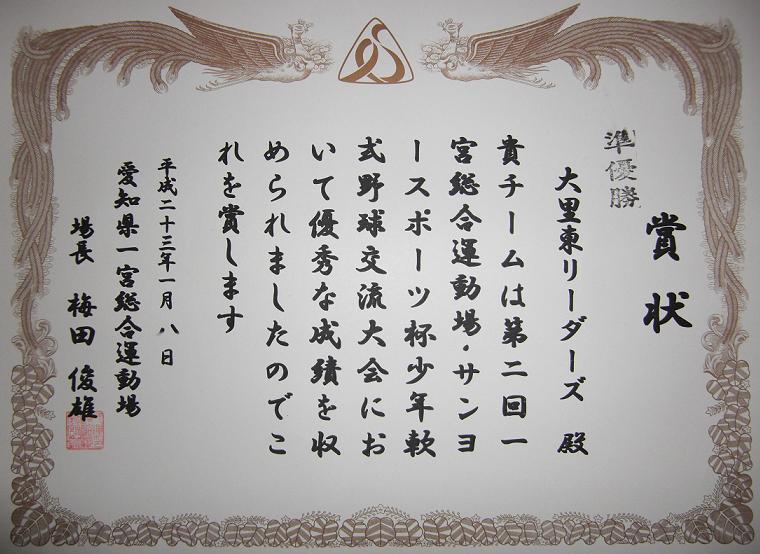 賞状
準優勝
大里東リーダーズ 殿
貴チームは第二回一
宮総合運動場・サンヨ
ースポーツ杯少年軟
式野球交流大会にお
いて優秀な成績を収
められましたのでこ
れを賞します
平成二十三年一月八日
愛知県一宮総合運動場
場長 梅田俊雄